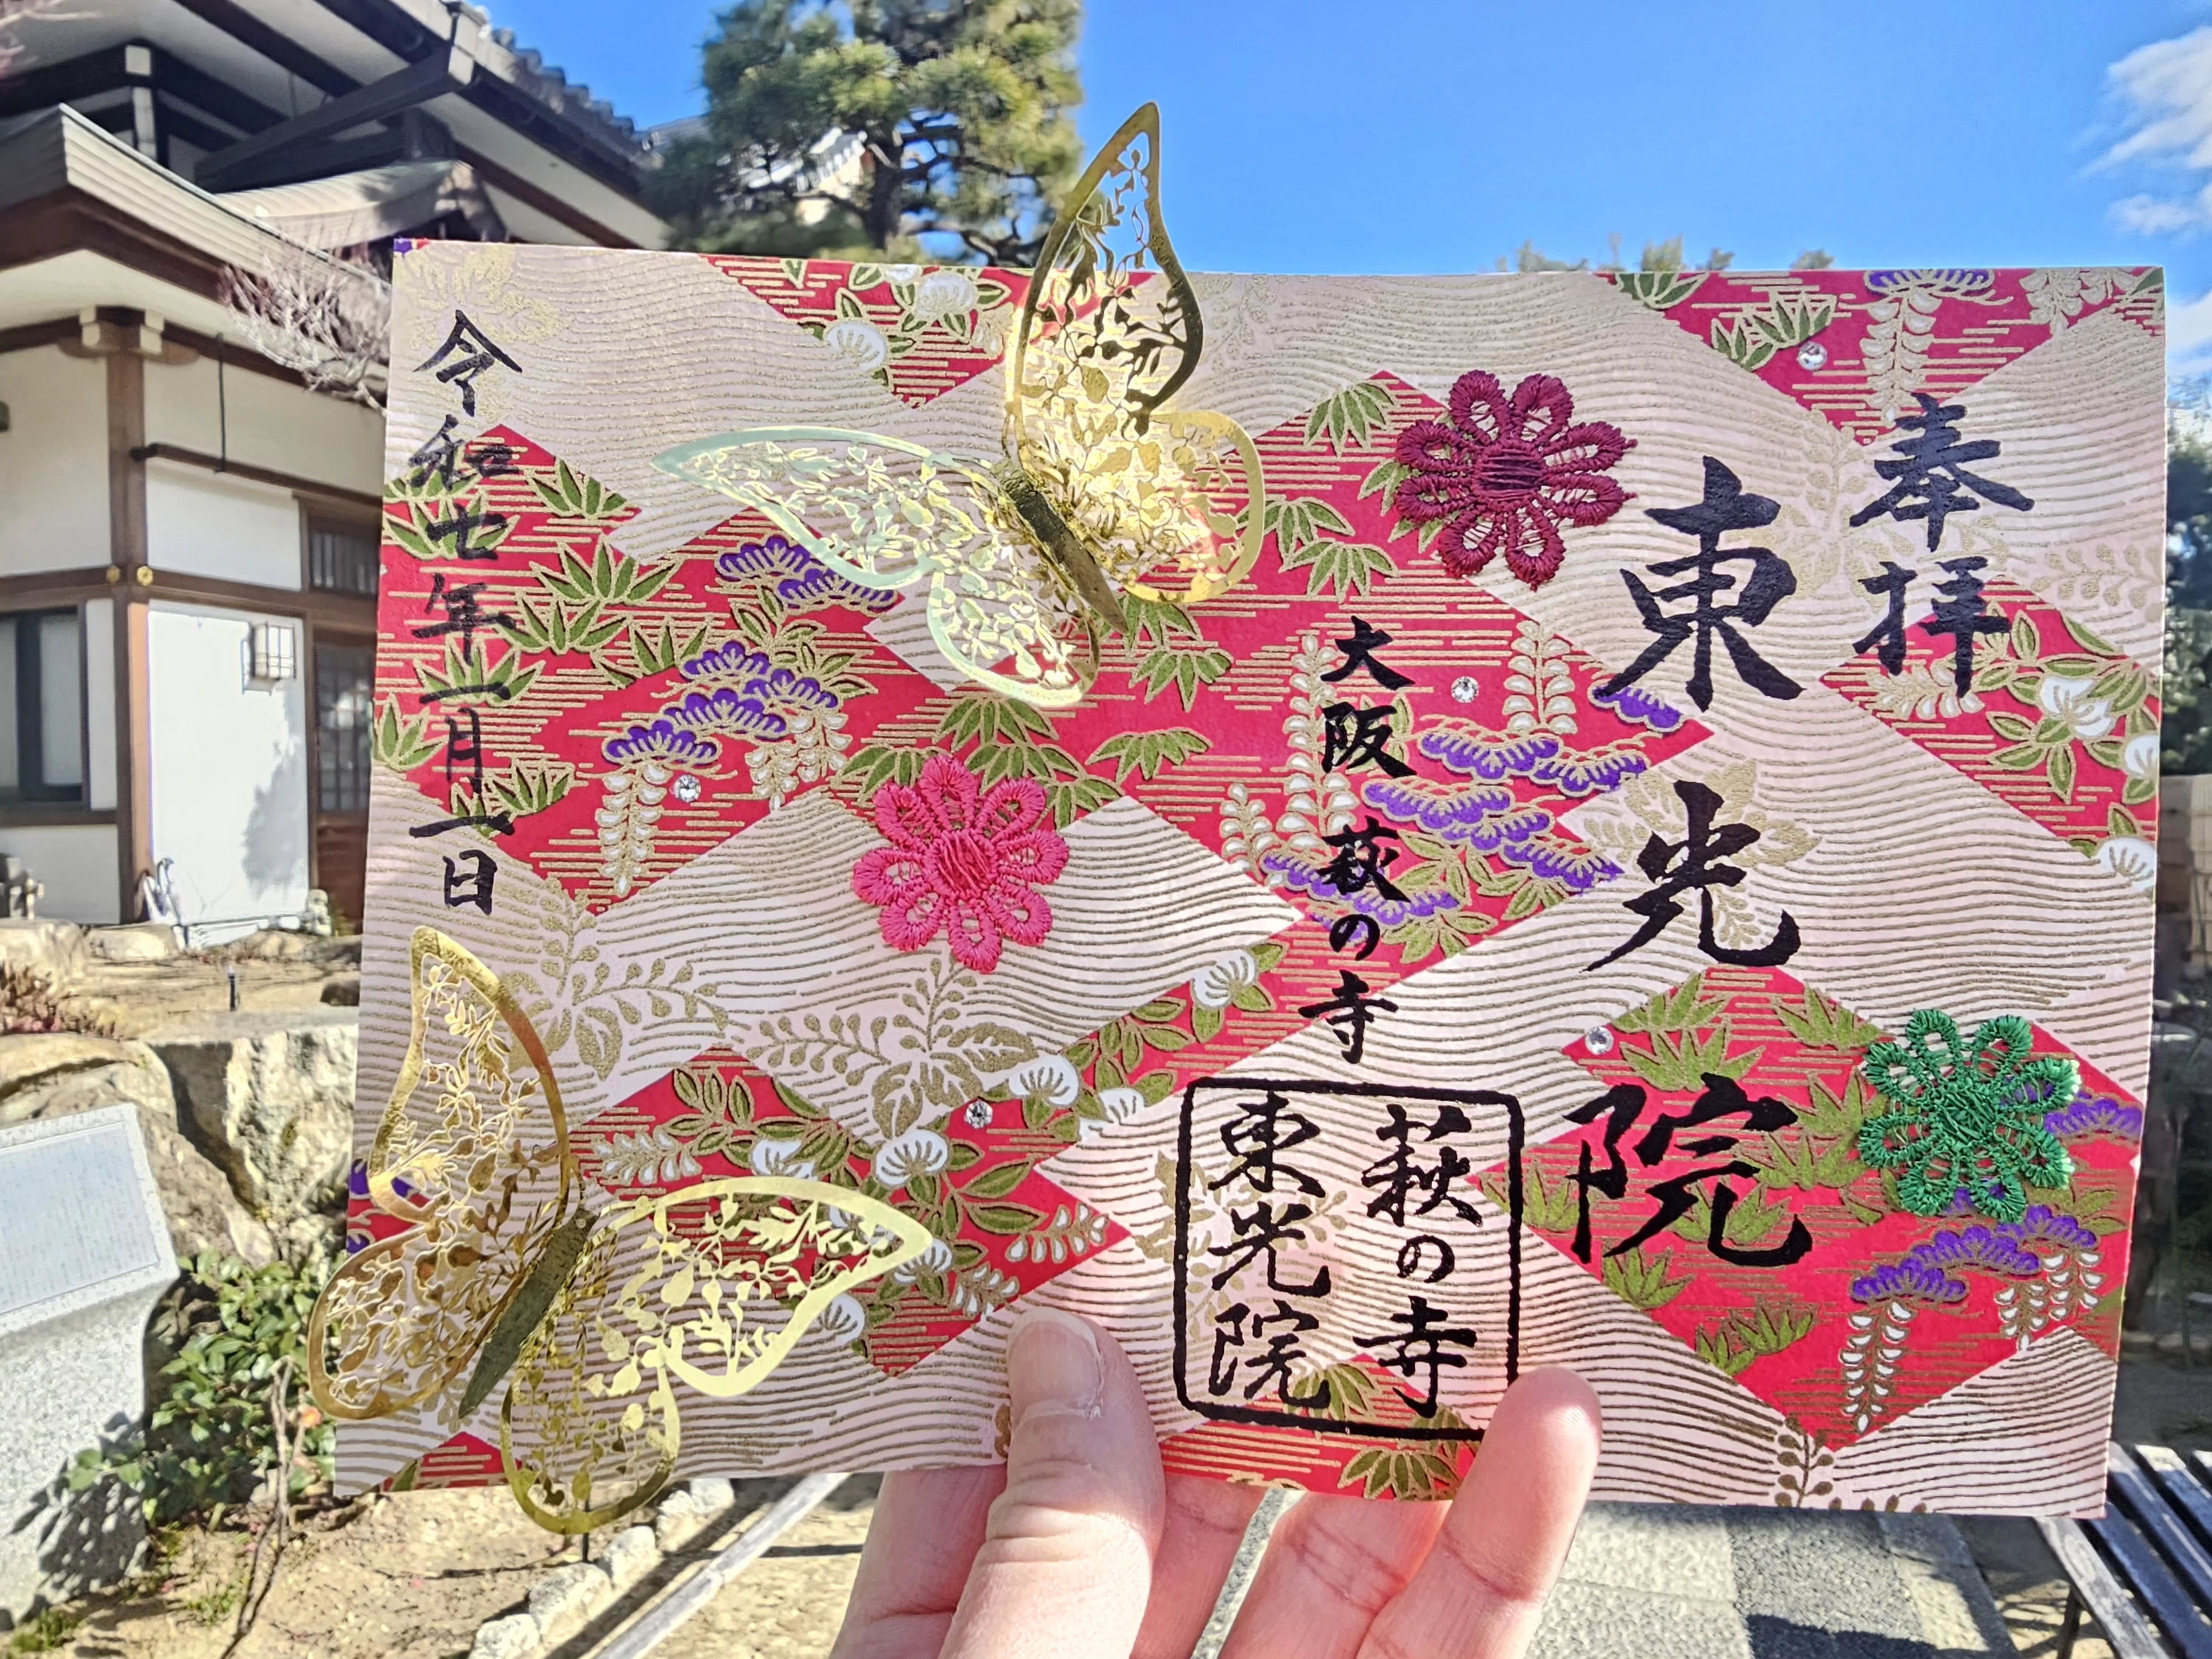 奉拝
東光院
大阪萩の寺
萩の寺
東光院
令和七年一月一日